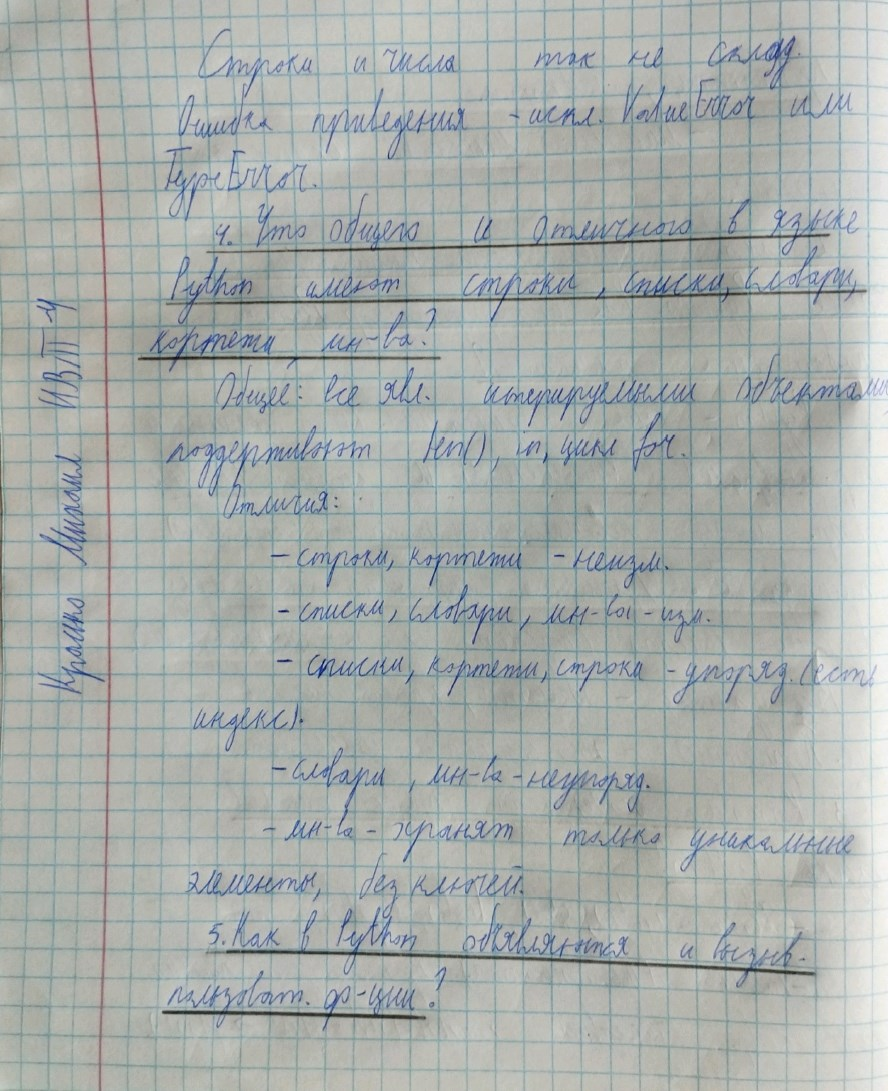 Строки и числа так не склад.
Ошибка приведения - искл. ValueError или
TypeError.
4. Что общего и отличного в языке
Python имеют строки, списки, словари,
кортежи, мн-ва?
Общее: все явл. итерируемыми объектами
поддерживают len(), in, цикл for.
Отличия:
- строки, кортежи - неизм.
- списки, словари, мн-ва - изм.
- списки, кортежи, строки - упоряд. (есть
индекс).
- словари, мн-ва - неупоряд.
- мн-ва - хранят только уникальные
элементы, без ключей.
5. Как в Python объявляются и вызыв.
пользоват. ф-ции?
Михаил